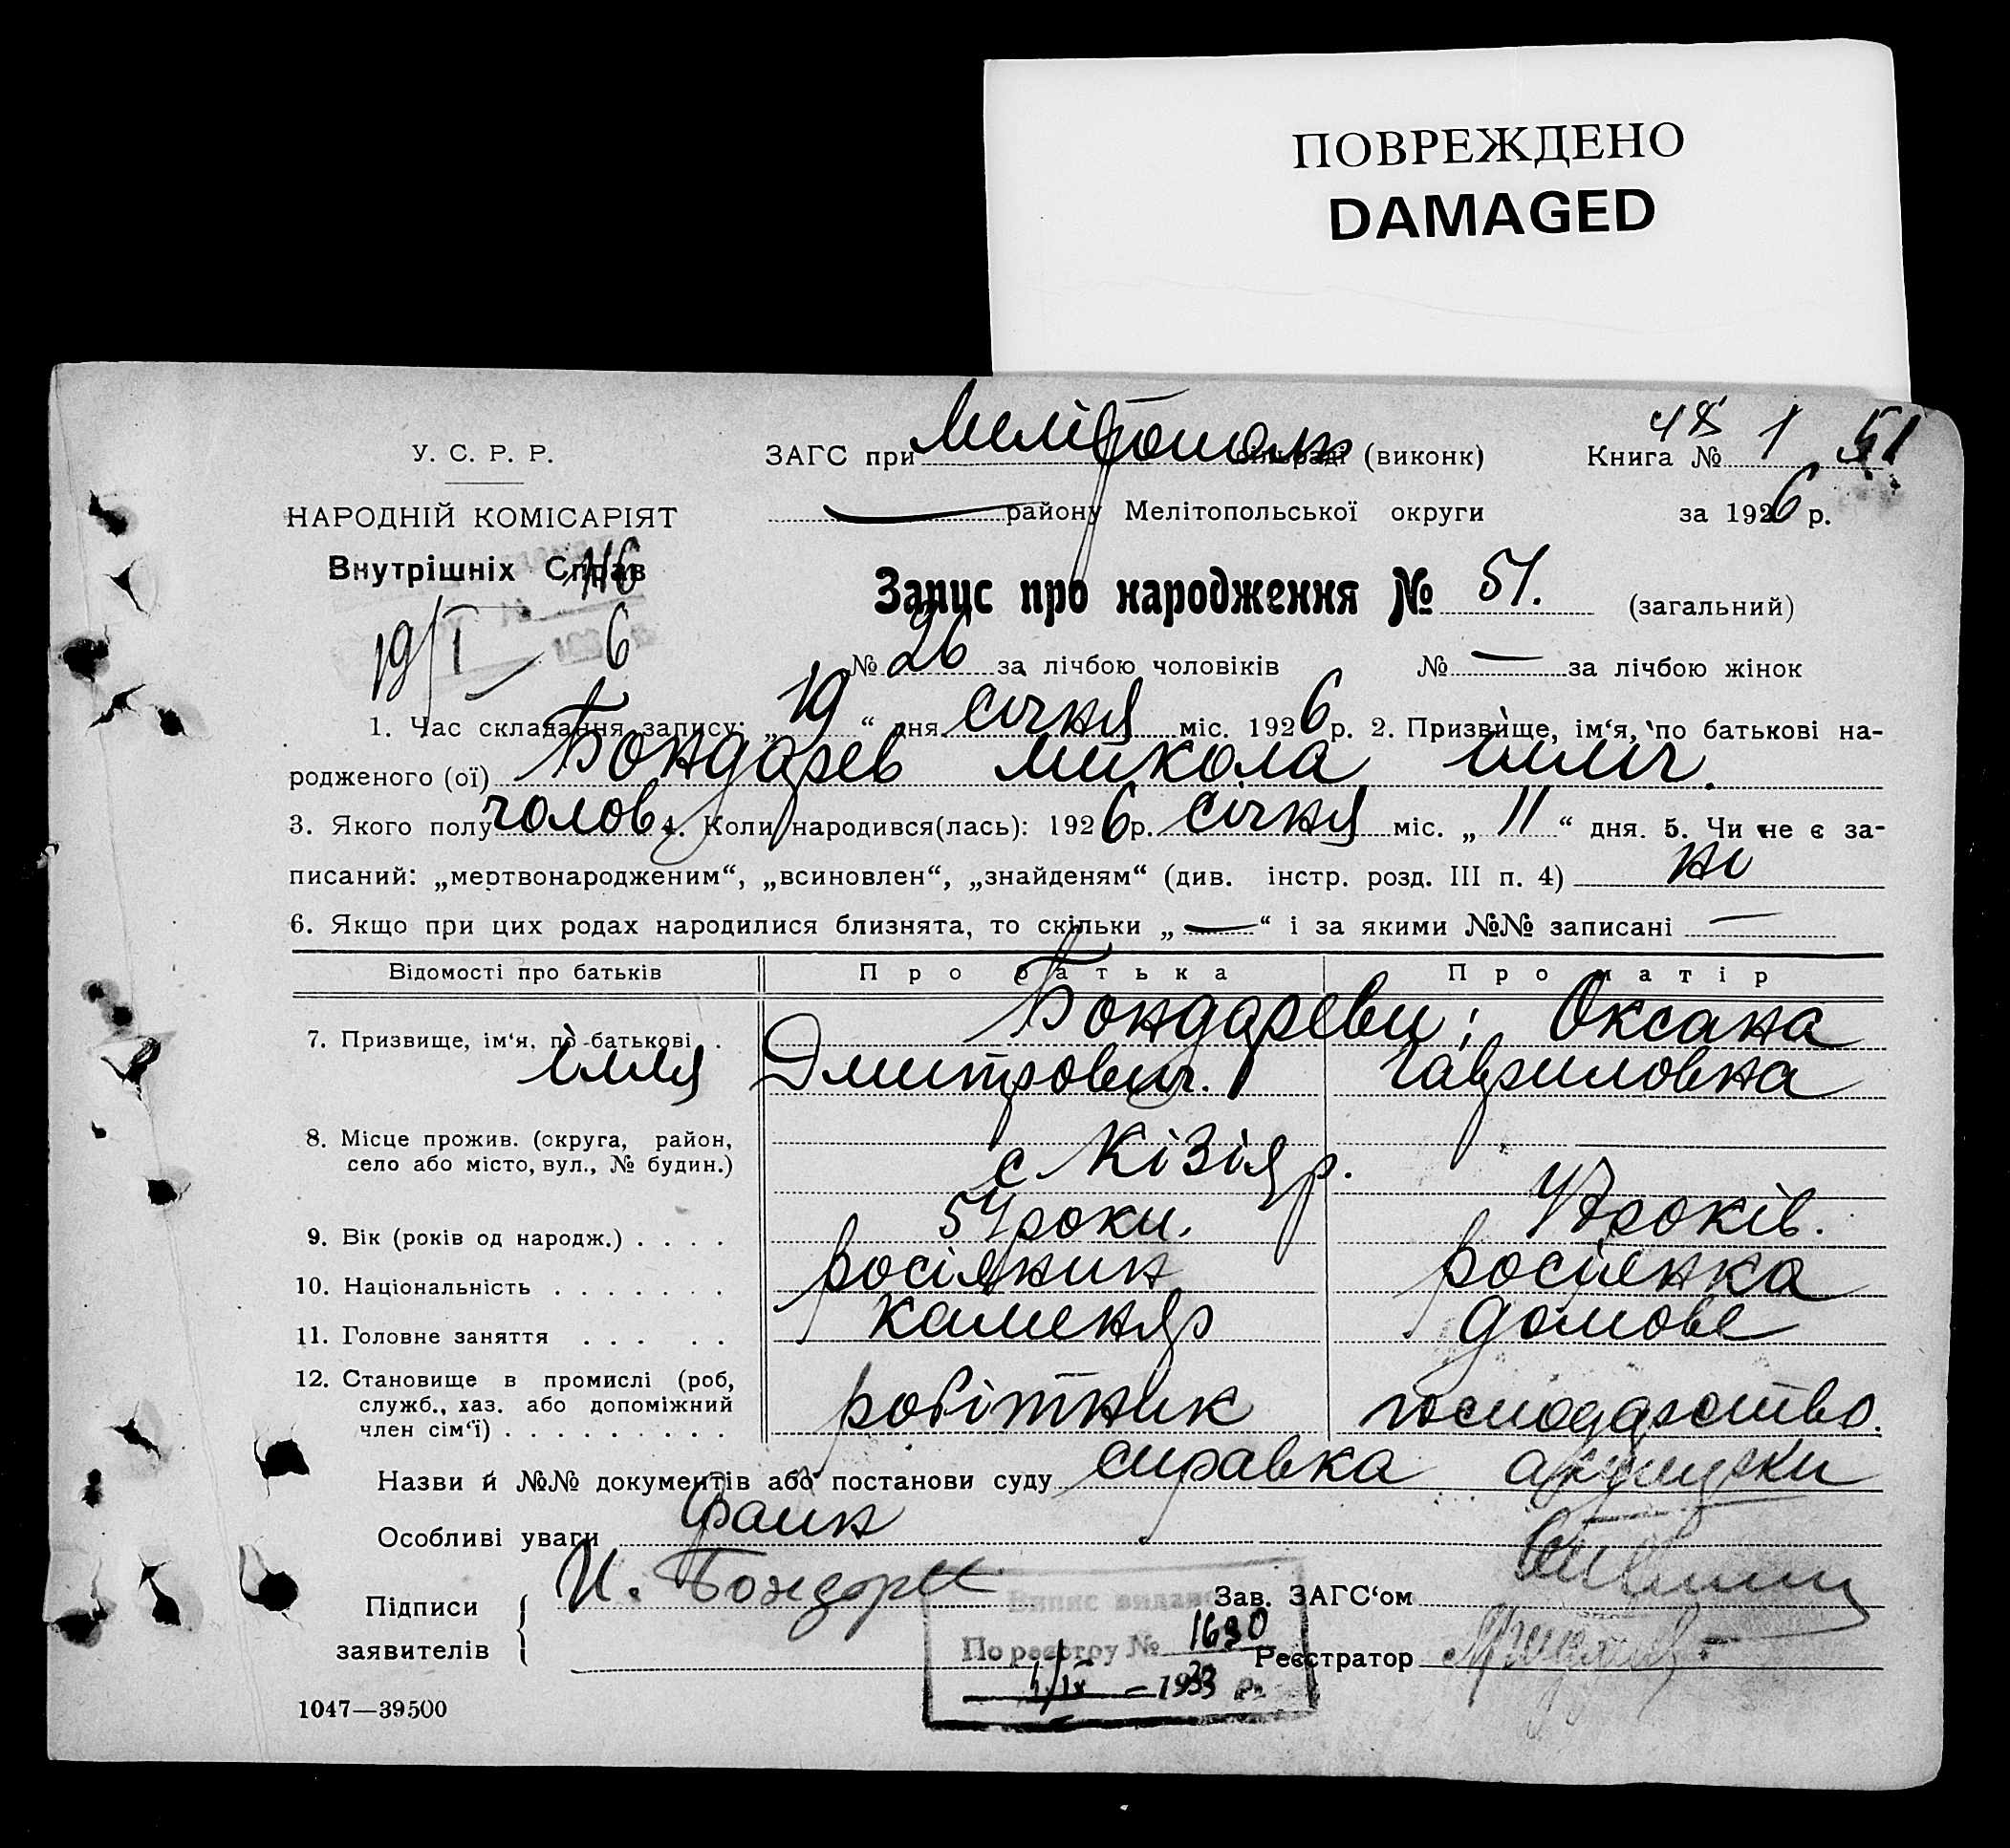 ПОВРЕЖДЕНО
DAMAGED
У. С. Р. Р.
ЗАГС при Мелітополь сільраді (виконк)
Книга № 1 51
НАРОДНІЙ КОМІСАРІЯТ
району Мелітопольської округи
за 1926 р.
Внутрішніх Справ
Запис про народження № 51. (загальний)
19/I 6
№ 26 за лічбою чоловіків № — за лічбою жінок
1. Час складання запису: „ 19 “ дня січня міс. 1926 р. 2. Призвище, ім‘я, по батькові на-
родженого (ої) Бондарев Микола Ілліч.
3. Якого полу чолов 4. Коли народився(лась): 1926 р. січня міс. „ 11 “ дня. 5. Чи не є за-
писаний: „мертвонародженим“, „всиновлен“, „знайденям“ (див. інстр. розд. III п. 4) ні
6. Якщо при цих родах народилися близнята, то скільки „ — “ і за якими №№ записані —
Відомості про батьків Про батька Про матір
Бондареви: Оксана
7. Призвище, ім‘я, по батькові .
Ілля Дмитрович. Гавриловна
8. Місце прожив. (округа, район,
село або місто, вул., № будин.)
с Кізіяр.
9. Вік (років од народж.) . . . . 54 роки. 47 років.
10. Національність . . . . . . . росіянин росіянка
11. Головне заняття . . . . . каменяр домове
12. Становище в промислі (роб,
служб., хаз. або допоміжний
член сім‘ї) . . . . . . . . . робітник господарство.
Назви й №№ документів або постанови суду справка акушерки
Особливі уваги
И. Бондарев
Підписи
заявителів
Випис видано
По реєстру № 1630
1933 р.
Зав. ЗАГС‘ом
Реєстратор
1047—39500